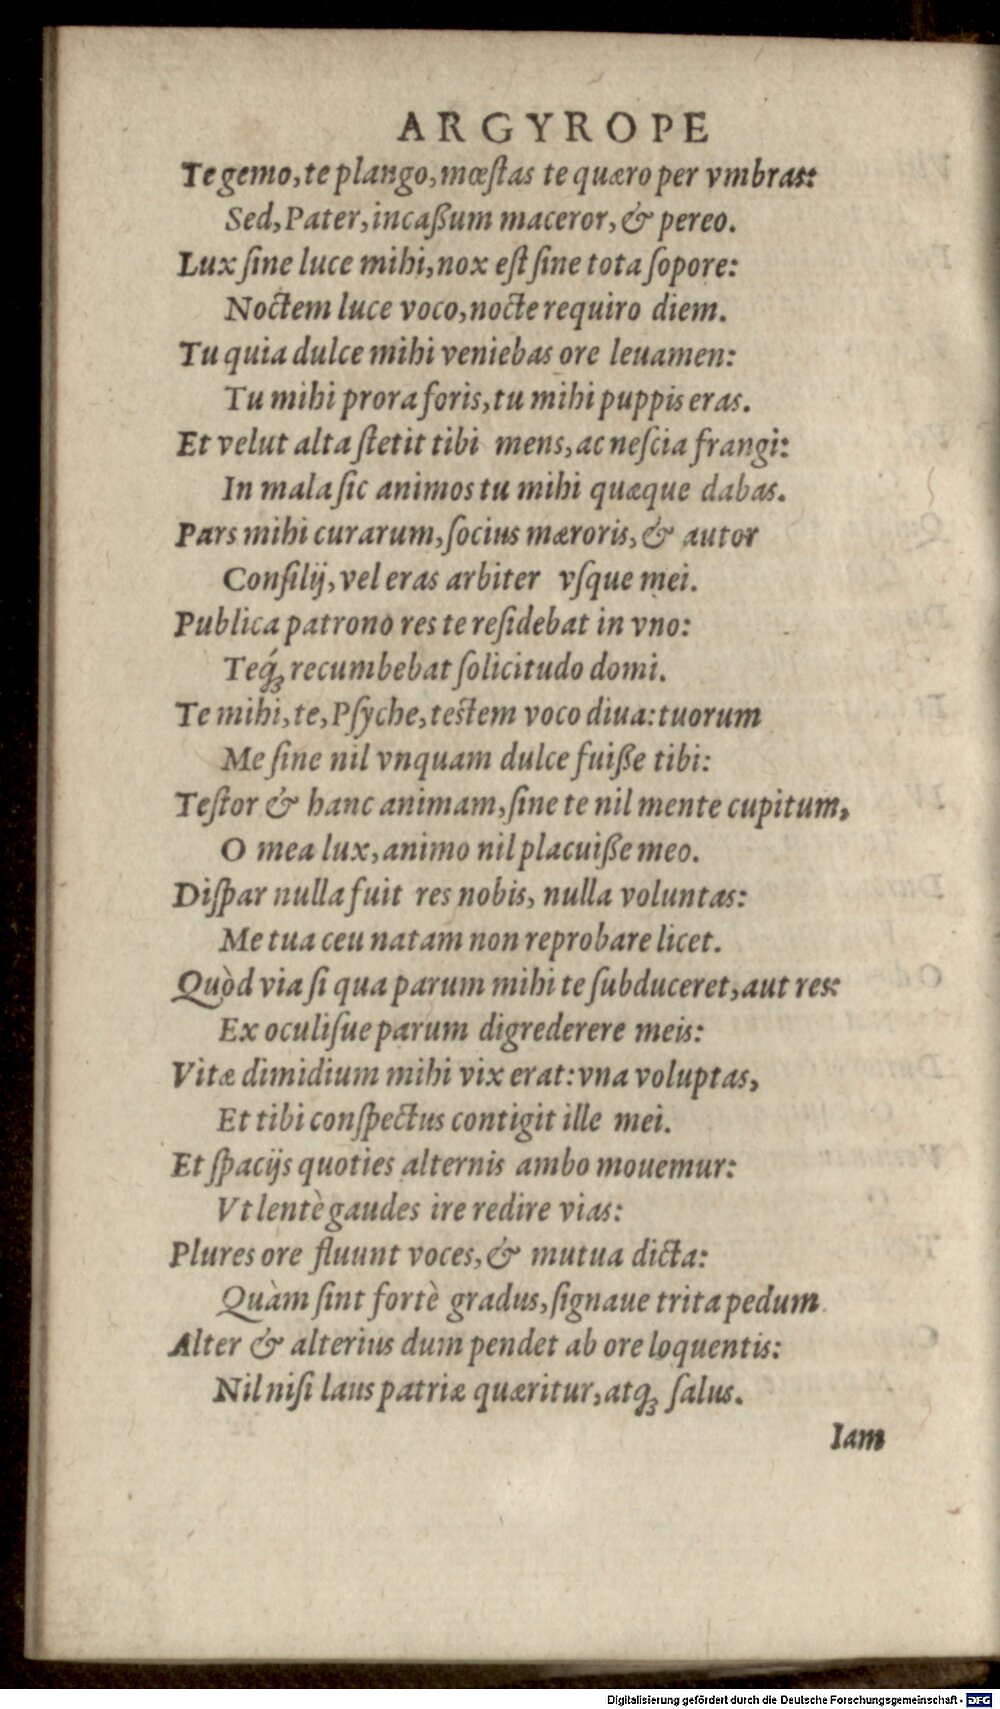 ARGYROPE
Te gemo, te plango, mœſtas te quæro per vmbras:
Sed, Pater, incaßum maceror, & pereo.
Lux ſine luce mihi, nox eſt ſine tota ſopore:
Noctem luce voco, nocte requiro diem.
Tu quia dulce mihi veniebas ore leuamen:
Tu mihi prora foris, tu mihi puppis eras.
Et velut alta ſtetit tibi mens, ac neſcia frangi:
In mala ſic animos tu mihi quæque dabas.
Pars mihi curarum, ſocius mæroris, & autor
Conſilij, vel eras arbiter vſque mei.
Publica patrono res te reſidebat in vno:
Teq́ꝫ recumbebat ſolicitudo domi.
Te mihi, te, Pſyche, teſtem voco diua: tuorum
Me ſine nil vnquam dulce fuiße tibi:
Teſtor & hanc animam, ſine te nil mente cupitum,
O mea lux, animo nil placuiße meo.
Diſpar nulla fuit res nobis, nulla voluntas:
Me tua ceu natam non reprobare licet.
Quòd via ſi qua parum mihi te ſubduceret, aut res:
Ex oculiſue parum digrederere meis:
Vitæ dimidium mihi vix erat: vna voluptas,
Et tibi conſpectus contigit ille mei.
Et ſpacijs quoties alternis ambo mouemur:
Vt lentè gaudes ire redire vias:
Plures ore fluunt voces, & mutua dicta:
Quàm ſint fortè gradus, ſignaue trita pedum
Alter & alterius dum pendet ab ore loquentis:
Nil niſi laus patriæ quæritur, atqꝫ ſalus.
Iam
Digitalisierung gefördert durch die Deutsche Forschungsgemeinschaft - DFG